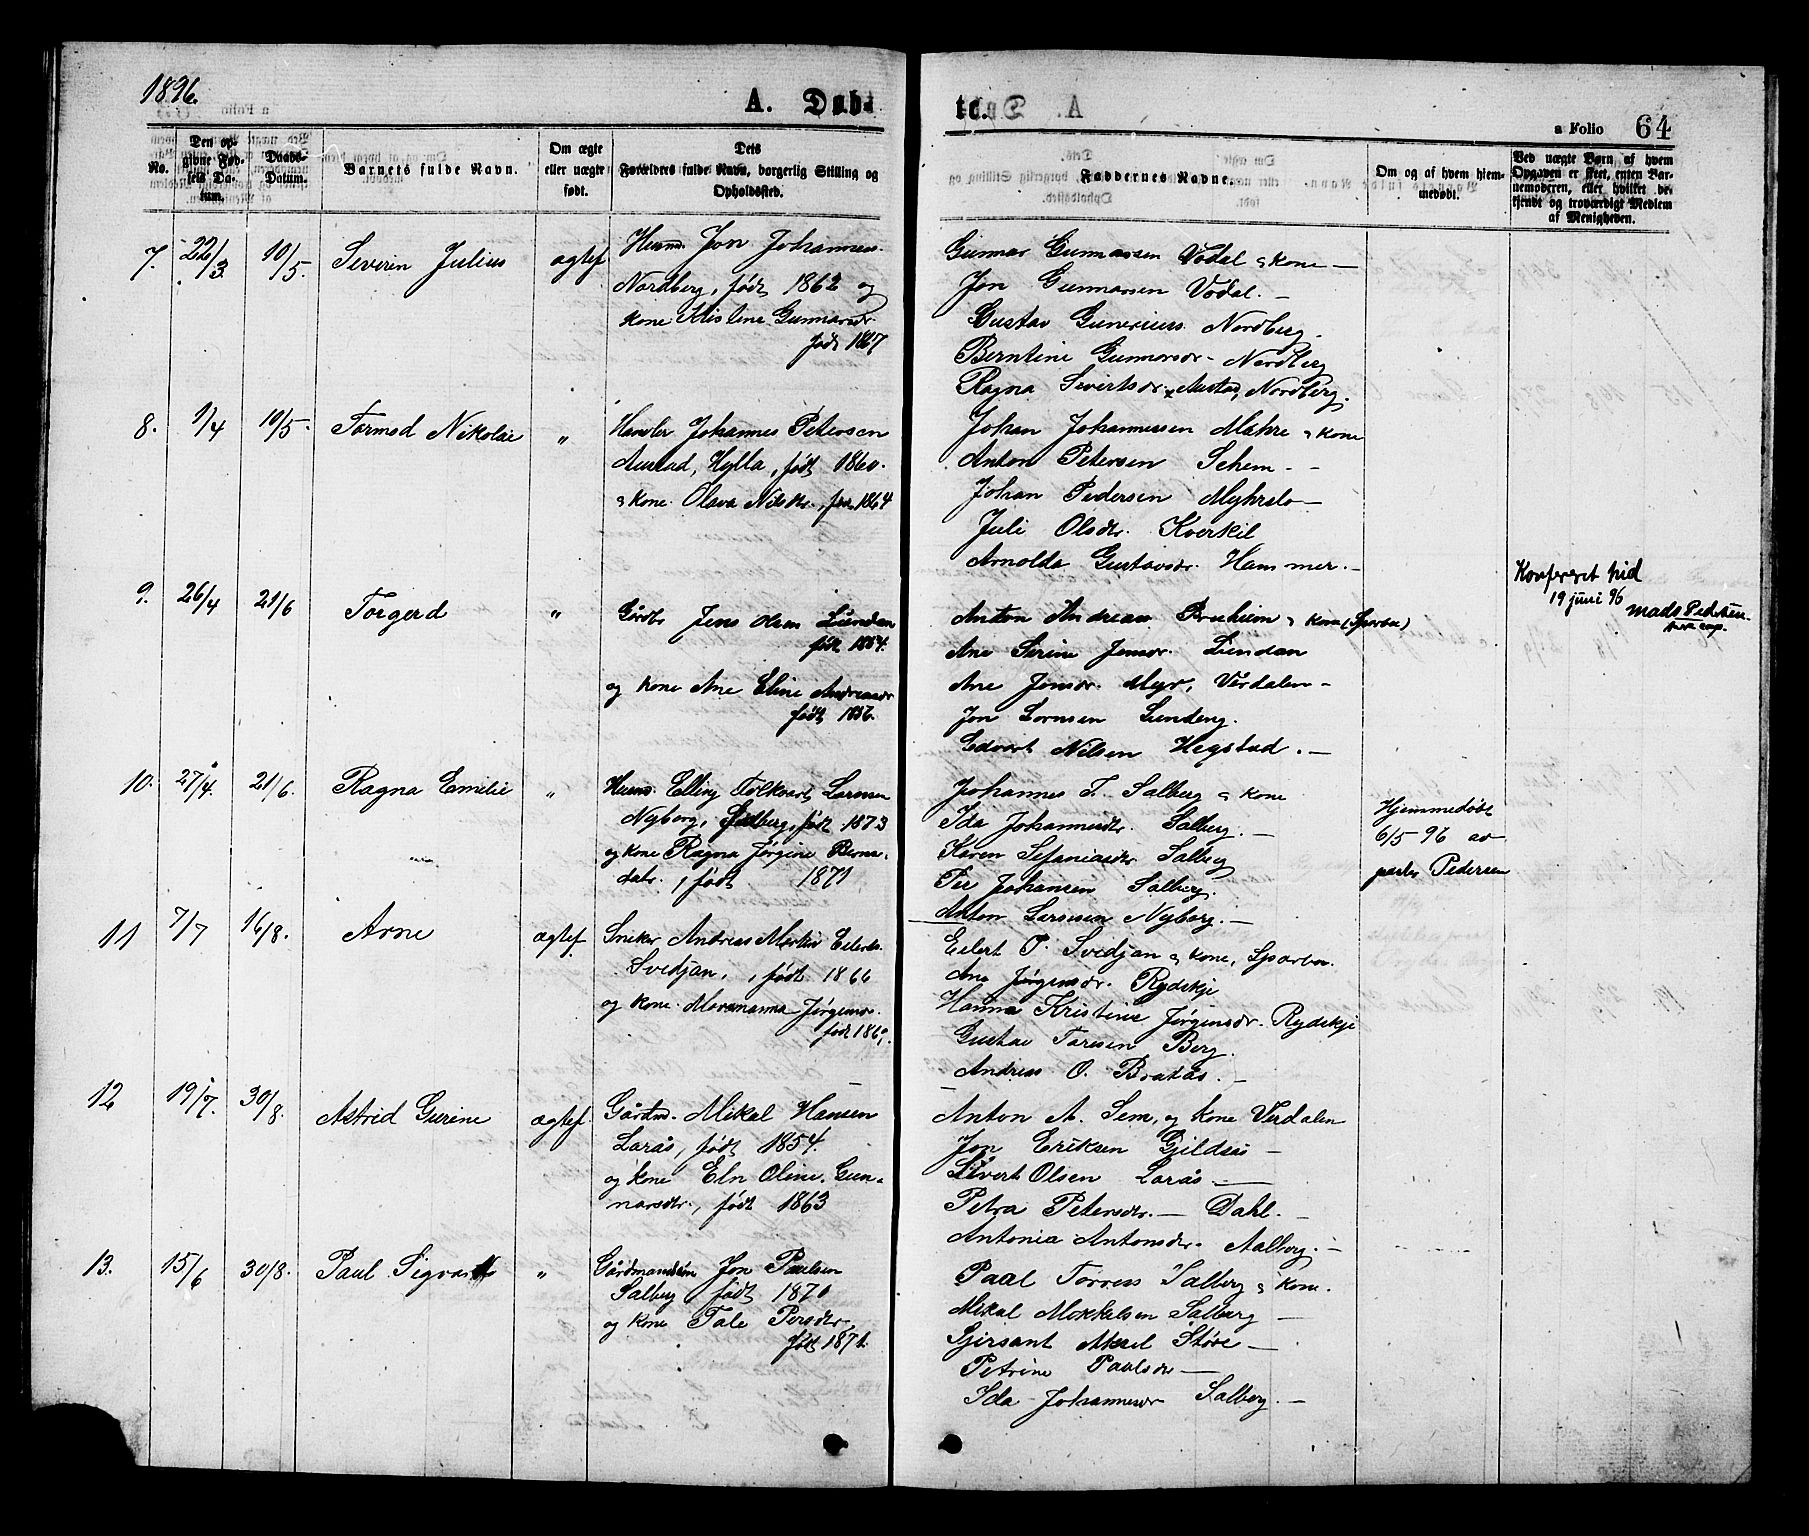 1896.
A. Døb-
te.
a Folio 64
No.
Den op-
givne Fød-
sels Da-
tum.
Daabs-
Datum.
Barnets fulde Navn.
Om ægte
eller uægte
født.
Dets
Forældres fulde Navn, borgerlig Stilling og
Opholdssted.
Faddernes Navne.
Om og af hvem hjem-
medøbt.
Ved uægte Børn af hvem
Opgaven er skeet, enten Bar-
nemoderen, eller hvilket be-
kjendt og troværdigt Medlem
af Menigheden.
7. 22/3 10/5. Severin Julius ægtef
Husm. Jon Johanness.
Nordberg, født 1862 og
kone Kristine Gunnarsdr.
født 1867
Gunnar Gunnarsen Vodal & kone —
Jon Gunnarsen Vodal. —
Gustav Guneriuss. Nordberg.
Berntine Gunnarsdr. Nordberg
Ragna Sivertsdr. Austad, Nordberg.
8. 1/4 10/5. Tormod Nikolai "
Handler Johannes Petersen
Austad, Hylla, født 1860.
& kone Olava Nilsdr., født 1864
Johan Johannessen Mahre & kone
Anton Petersen Schem - -
Johan Pedersen Myhrslo —
Juli Olsdr. Kverkil
Arnolda Gustavsdr. Hammer. —
9. 26/4 21/6 Torgerd "
Gårdb. Jens Olsen Lundan
født 1854.
og kone Ane Eline Andreasdr
født 1856.
Anton Andreas. Bruheim & kone (Sparbu)
Ane Serine Jensdr. Lundan
Ane Jensdr. Myr, Verdalen —
Jon Lornsen Sunderg.
Edvart Nilsen Hegstad. —
Konfereret hid
19 juni 96
Mads Pedersen
pers. cap.
10. 27/4. 21/6. Ragna Emilie "
Husm. Elling Folkvart Larssen
Nyborg, Salberg, født 1873
og kone Ragna Jørgine Berna-
datr., født 1871
Johannes T. Salberg & kone
Ida Johannesdr. Salberg. —
Karen Sefaniasdr Salberg
Per Johansen Salberg.
Anton Larssen Nyborg. —
Hjemmedøbt
6/5 96 av
pastor Pedersen
11 7/7 16/8. Arne ægtef.
Sniker Andreas Martin Eilerts.
Svedjan, født 1866
og kone Marenanna Jørgensdr.
født 186
Eilert P. Svedjan & kone, Sparbu.
Ane Jørgensdr. Rydskje
Hanna Kristine Jørgensdr. Rydskje
Gustav Taresen Berg.
Andreas O. Bratås. —
12 19/7. 30/8. Astrid Gurine ægtef.
Gårdm. Mikal Hansen
Larås, født 1854.
og kone Eln Oline Gun-
narsdtr., født 1863
Anton A. Sem, og kone Verdalen
Jon Eriksen Gjildsås —
Sivert Olsen Larås. —
Petra Petersdr. — Dahl. —
Antonia Antonsdr. Aalberg. —
13. 15/6 30/8. Paul Sigvart "
Gårdmandsøn Jon Paulsen
Salberg født 1870
og kone Tale Persdtr,
født 1871.
Paal Torress Salberg & kone.
Mikal Mikkelsen Salberg —
Sersant Aksel Støre —
Petrine Paulsdr —
Ida Johannesdr Salberg. —